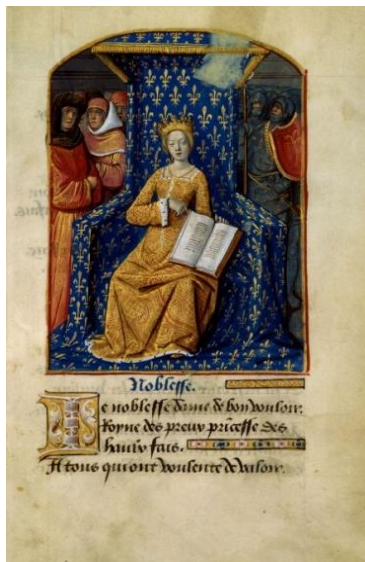 Noblesse.
Je noblesse dame de bon vouloir.
Royne des preux prĩcesse des
haulx fais.
A tous qui ont voulente de valoir.